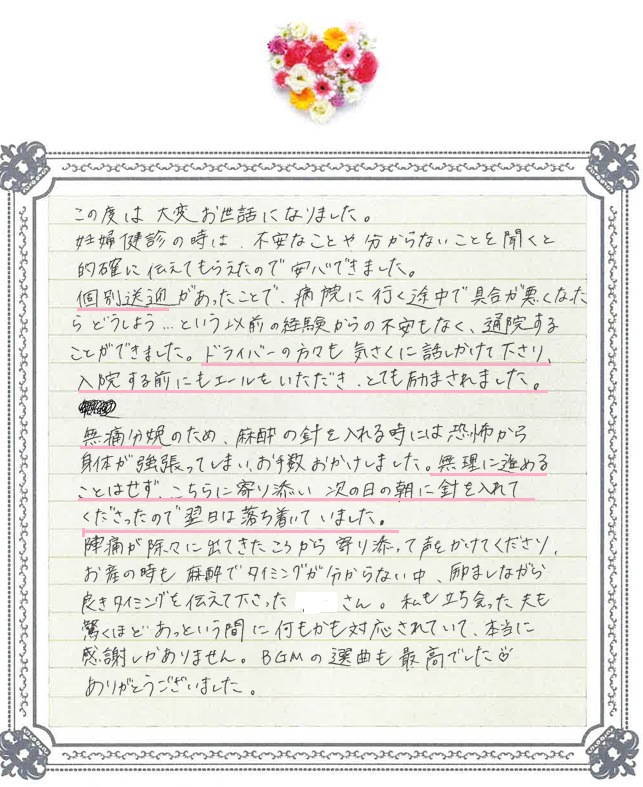 この度は大変お世話になりました。
妊婦健診の時は、不安なことや分からないことを聞くと
的確に伝えてもらえたので安心できました。
個別送迎があったことで、病院に行く途中で具合が悪くなった
らどうしよう…という以前の経験からの不安もなく、通院する
ことができました。ドライバーの方々も気さくに話しかけて下さり、
入院する前にもエールをいただき、とても励まされました。
無痛分娩のため、麻酔の針を入れる時には恐怖から
身体が強張ってしまい、お手数おかけしました。無理に進める
ことはせず、こちらに寄り添い次の日の朝に針を入れて
くださったので翌日は落ち着いていました。
陣痛が除々に出てきたころから寄り添って声をかけてくださり、
お産の時も麻酔でタイミングが分からない中、励ましながら
良きタイミングを伝えて下さった さん。私も立ち会った夫も
驚くほどあっという間に何もかも対応されていて、本当に
感謝しかありません。BGMの選曲も最高でした
ありがとうございました。